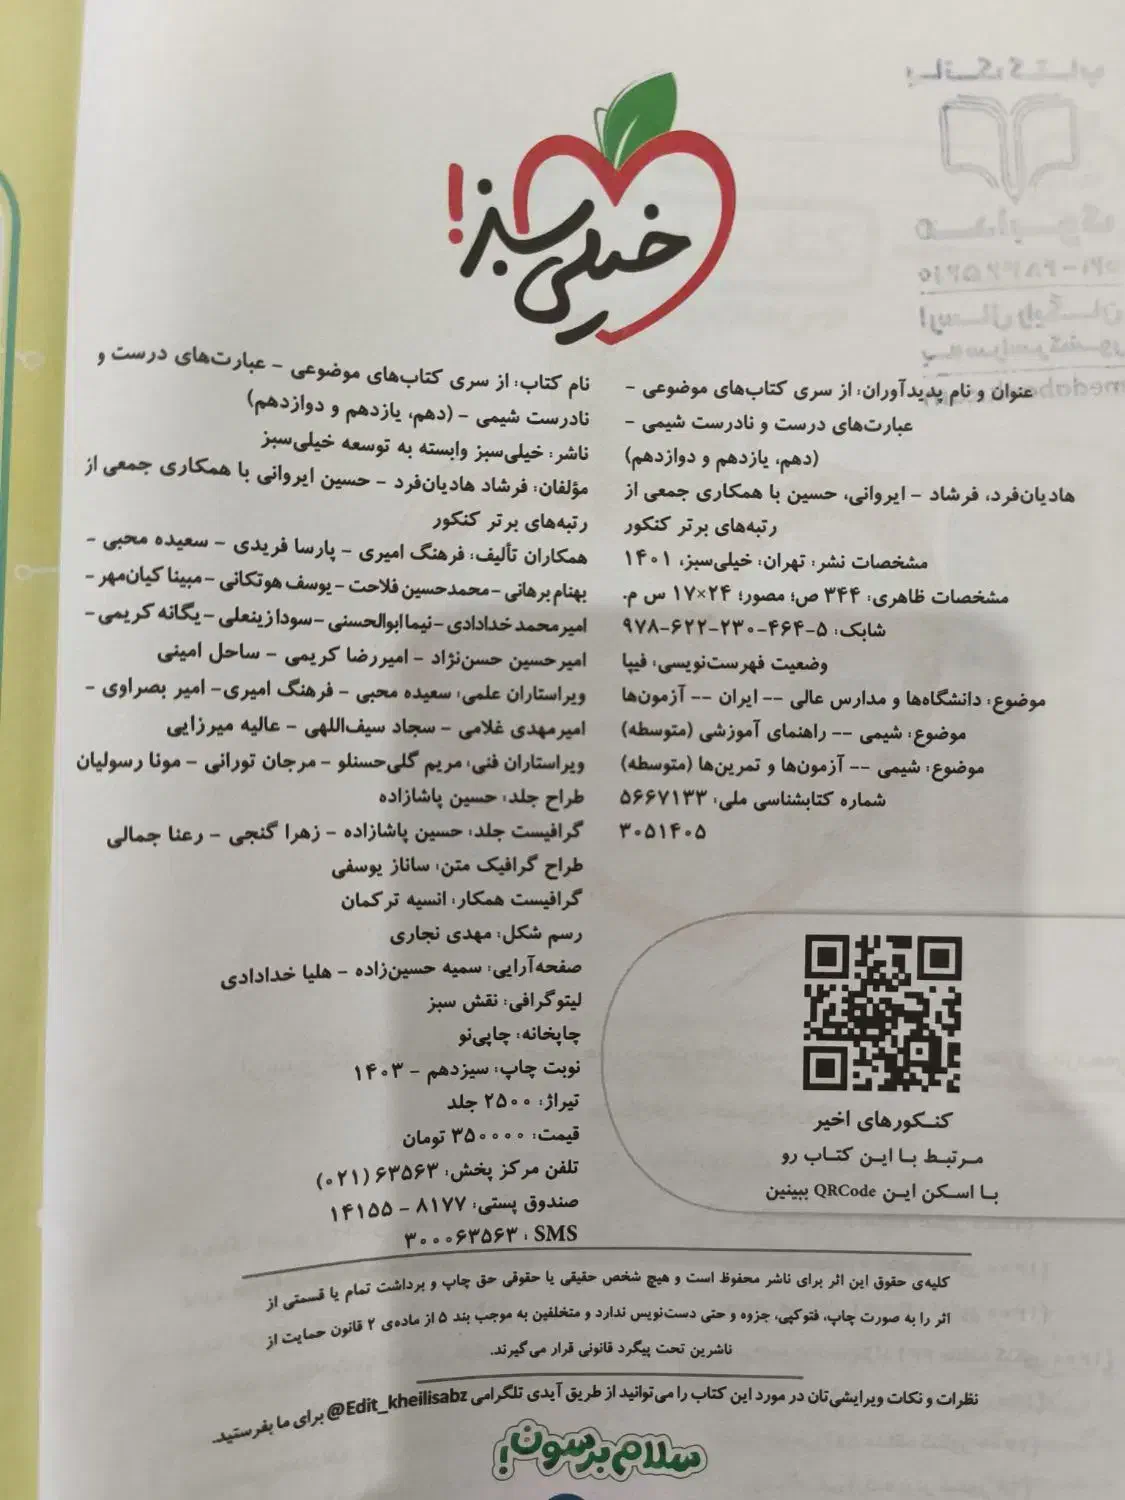 خیلی سبز!
عنوان و نام پدیدآوران: از سری کتاب‌های موضوعی -
عبارت‌های درست و نادرست شیمی -
(دهم، یازدهم و دوازدهم)
هادیان‌فرد، فرشاد - ایروانی، حسین با همکاری جمعی از
رتبه‌های برتر کنکور
مشخصات نشر: تهران: خیلی‌سبز، ۱۴۰۱
مشخصات ظاهری: ۳۴۴ ص؛ مصور؛ ۲۴×۱۷ س م.
شابک: ۵-۴۶۴-۲۳۰-۶۲۲-۹۷۸
وضعیت فهرست‌نویسی: فیپا
موضوع: دانشگاه‌ها و مدارس عالی -- ایران -- آزمون‌ها
موضوع: شیمی -- راهنمای آموزشی (متوسطه)
موضوع: شیمی -- آزمون‌ها و تمرین‌ها (متوسطه)
شماره کتابشناسی ملی: ۵۶۶۷۱۳۳
۳۰۵۱۴۰۵
کنـکورهای اخیر
مـرتبـط بـا ایـن کتـاب رو
بـا اسـکن ایـن QRCode ببینین
نام کتاب: از سری کتاب‌های موضوعی - عبارت‌های درست و
نادرست شیمی - (دهم، یازدهم و دوازدهم)
ناشر: خیلی‌سبز وابسته به توسعه خیلی‌سبز
مؤلفان: فرشاد هادیان‌فرد - حسین ایروانی با همکاری جمعی از
رتبه‌های برتر کنکور
همکاران تألیف: فرهنگ امیری - پارسا فریدی - سعیده محبی -
بهنام برهانی - محمدحسین فلاحت - یوسف هوتکانی - مبینا کیان‌مهر -
امیرمحمد خدادادی - نیما ابوالحسنی - سودا زینعلی - یگانه کریمی -
امیرحسین حسن‌نژاد - امیررضا کریمی - ساحل امینی
ویراستاران علمی: سعیده محبی - فرهنگ امیری- امیر بصراوی -
امیرمهدی غلامی - سجاد سیف‌اللهی - عالیه میرزایی
ویراستاران فنی: مریم گلی‌حسنلو - مرجان تورانی - مونا رسولیان
طراح جلد: حسین پاشازاده
گرافیست جلد: حسین پاشازاده - زهرا گنجی - رعنا جمالی
طراح گرافیک متن: ساناز یوسفی
گرافیست همکار: انسیه ترکمان
رسم شکل: مهدی نجاری
صفحه‌آرایی: سمیه حسین‌زاده - هلیا خدادادی
لیتوگرافی: نقش سبز
چاپخانه: چاپی‌نو
نوبت چاپ: سیزدهم - ۱۴۰۳
تیراژ: ۲۵۰۰ جلد
قیمت: ۳۵۰۰۰۰ تومان
تلفن مرکز پخش: ۶۳۵۶۳ (۰۲۱)
صندوق پستی: ۸۱۷۷ - ۱۴۱۵۵
SMS : ۳۰۰۰۶۳۵۶۳
کلیه‌ی حقوق این اثر برای ناشر محفوظ است و هیچ شخص حقیقی یا حقوقی حق چاپ و برداشت تمام یا قسمتی از
اثر را به صورت چاپ، فتوکپی، جزوه و حتی دست‌نویس ندارد و متخلفین به موجب بند ۵ از ماده‌ی ۲ قانون حمایت از
ناشرین تحت پیگرد قانونی قرار می‌گیرند.
نظرات و نکات ویرایشی‌تان در مورد این کتاب را می‌توانید از طریق آیدی تلگرامی Edit_kheilisabz@ برای ما بفرستید.
سلام برسون!